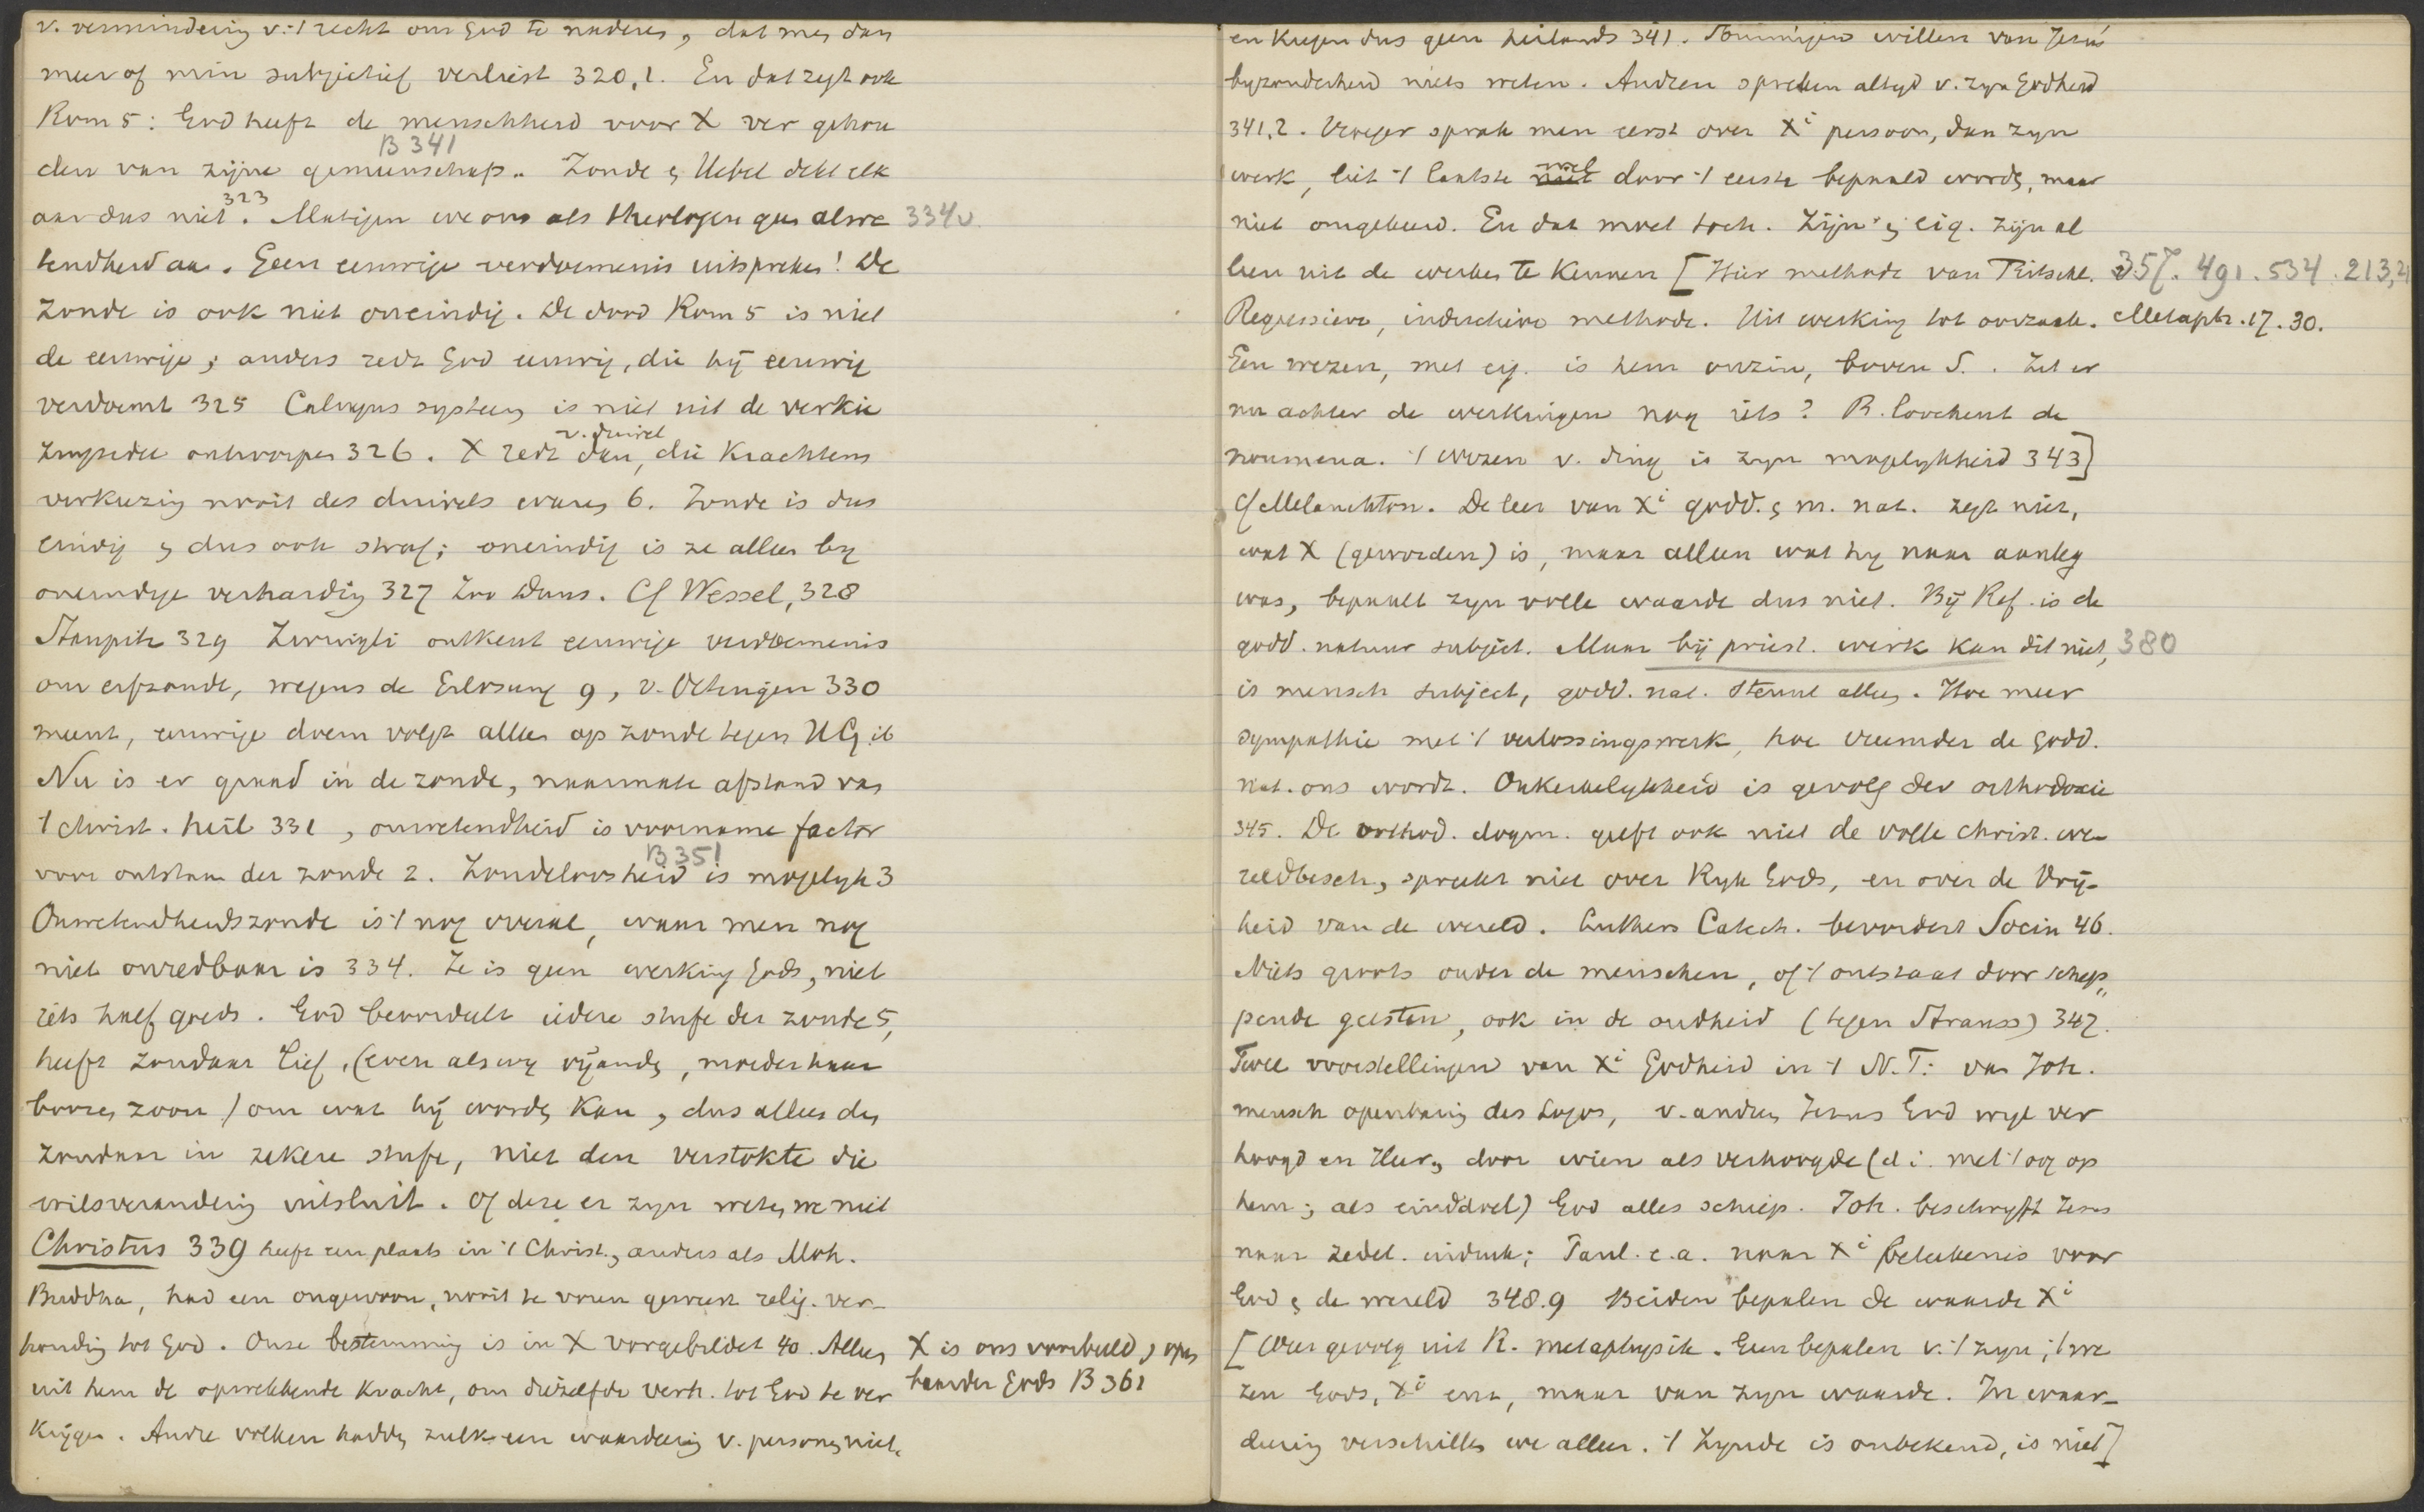 v. vermindering v. 't recht om God te naderen, dat men dan
meer of min subjectief verliest 320,1. En dat zegt ook
Rom 5: God heeft de menschheid voor X ver gehou
B 341
den van zijne gemeenschap. Zonde & Uebel dekt elk
323
aar dus niet. Matigen we ons als theologen qua alwe 334v.
tendheid aan. Geen eeuwige verdoemenis uitspreken! De
Zonde is ook niet oneindig. De dood Rom 5 is niet
de eeuwige; anders redt God eeuwig, die hij eeuwig
verdoemt 325 Calvyns systeem is niet uit de verkie
v. duivel
zingsidee ontworpen 326. X redt dan, die krachtens
verkiezing nooit des duivels waren 6. Zonde is dus
eindig & dus ook straf; oneindig is ze alleen by
oneindige verharding 327 Zoo Duns. Cf Wessel, 328
Staupitz 329 Zwingli ontkent eeuwige verdoemenis
om erfzonde, wegens de Erlosung 9, v. Oetingen 330
meent, eeuwige doem volgt alleen op zonde tegen HG. ib
Nu is er graad in de zonde, naarmate afstand van
't christ. heil 331, onwetendheid is voorname factor
B 351
voor ontstaan der zonde 2. Zondeloosheid is mogelyk 3
Onwetendheidszonde is 't nog overal, waar men nog
niet onredbaar is 334. Ze is geen werking Gods, niet
iets half goeds. God beoordeelt iedere stufe der zonde 5,
heeft zondaar lief, (even als wy vijanden, moeder haar
boozen zoon) om wat hij worden kan, dus alleen den
zondaar in zekere stufe, niet den verstokte die
wilsverandering uitsluit. Of deze er zyn weten we niet
Christus 339 heeft een plaats in 't Christ., anders als Moh.
Buddha, had een ongewoon, nooit te voren geweest relig. ver-
houding tot God. Onze bestemming is in X vorgebildet 40. Alleen
uit hem de opwekkende kracht, om diezelfde verh. tot God te ver
krijgen. Andre volken hadden zulk een waardeering v. personen niet,
X is ons voorbeeld, open
baarder Gods B 361
en kregen dus geen heilands 341. Sommigen willen van Jezus'
byzonderheid niets weten. Andren spreken altyd v. zyn Godheid
341,2. Vroeger sprak men eerst over Xi persoon, dan zyn
wel
werk, liet 't laatste niet door 't eerste bepaald worden, maar
niet omgekeerd. En dat moet toch. Zijn & eig. zijn al
leen uit de werken te kennen [Hier methode van Ritschl. 357. 491. 534. 213,21
Regressieve, inductieve methode. Uit werking tot oorzaak. Metaph. 17. 30.
Een wezen, met eig. is hem onzin, boven S. . Zit er
nu achter de werkingen nog iets? R. loochent de
noumena. 't wezen v. ding is zyn mogelykheid 343]
Cf Melanchton. De leer van Xi godd. & m. nat. zegt niet,
wat X (geworden) is, maar alleen wat hy naar aanleg
was, bepaalt zyn volle waarde dus niet. Bij Ref. is de
godd. natuur subject. Maar bij priest. werk kan dit niet, 380
is mensch subject, godd. nat. steunt alleen. Hoe meer
sympathie met 't verlossingswerk, hoe vreemder de godd.
nat. ons wordt. Onkerkelykheid is gevolg der orthodoxie
345. De orthod. dogm. geeft ook niet de volle christ. we-
reldbesch., spreekt niet over Ryk Gods, en over de Vrij-
heid van de wereld. Luthers Catech. bevordert Socin 46.
Niets groots onder de menschen, of 't ontstaat door schep-
pende geesten, ook in de oudheid (tegen Strauss) 347.
Twee voorstellingen van Xi Godheid in 't N.T: van Joh.
mensch openbaring des Logos, v. andren Jezus God wyl ver
hoogd en Heer, door wien als verhoogde (d i. met 't oog op
hem; als einddoel) God alles schiep. Joh. beschryft Jezus
naar zedel. indruk; Paul. e.a. naar Xi beteekenis voor
God & de wereld 348.9 Beiden bepalen de waarde Xi
[Weer gevolg uit R. metaphysik. Geen bepalen v. 't zyn; 't we
zen Gods, Xi enz, maar van zyn waarde. In waar-
deering verschillen we alleen. 't Zynde is onbekend, is niet]